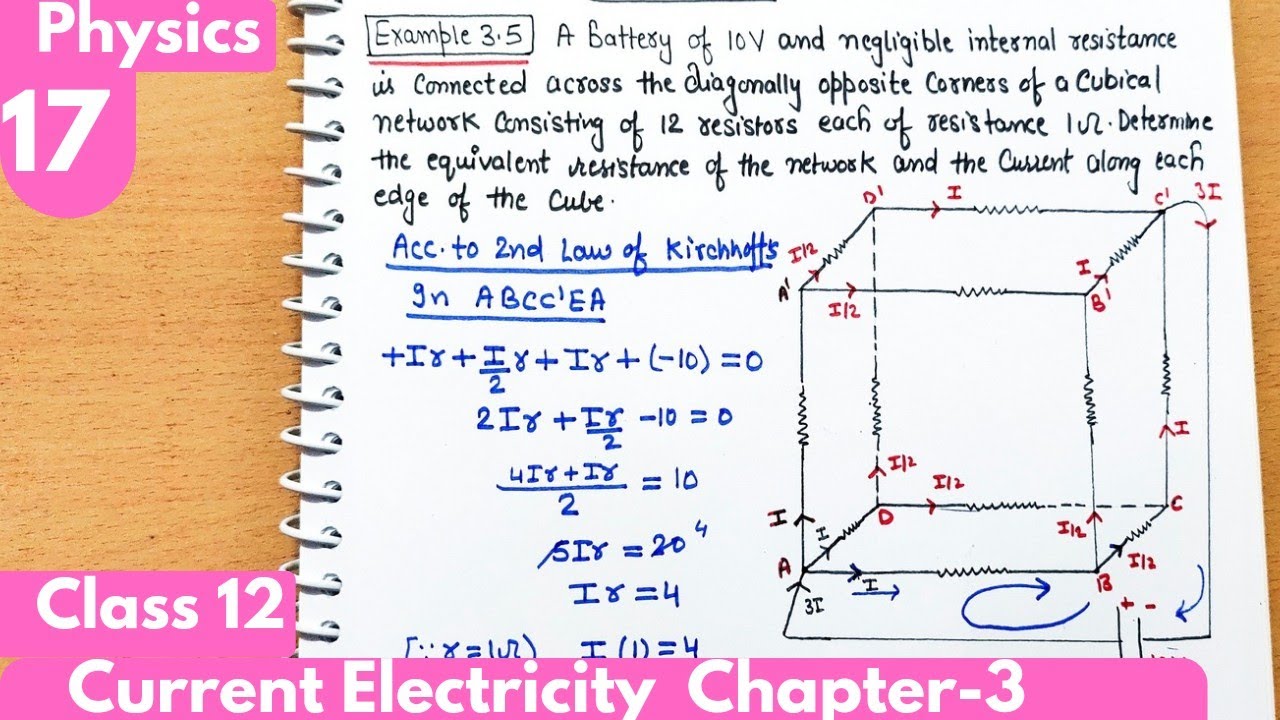 Physics
17
Example 3.5 A Battery of 10V and negligible internal resistance
is connected across the diagonally opposite Corners of a Cubical
network Consisting of 12 resistors each of resistance 1Ω. Determine
the equivalent resistance of the network and the Current along each
edge of the Cube.
Acc. to 2nd Law of Kirchhoff's
In ABCC'EA
+Ir + I/2 r + Ir + (-10) = 0
2Ir + Ir/2 - 10 = 0
4Ir + Ir / 2 = 10
5Ir = 20 4
Ir = 4
[∵ r = 1Ω) I (1) = 4
D' I C' 3I
I/2 I
A' I/2 B'
I
I/2 I/2
D C
I I I/2 I/2
A I B
3I + -
Class 12
Current Electricity Chapter-3